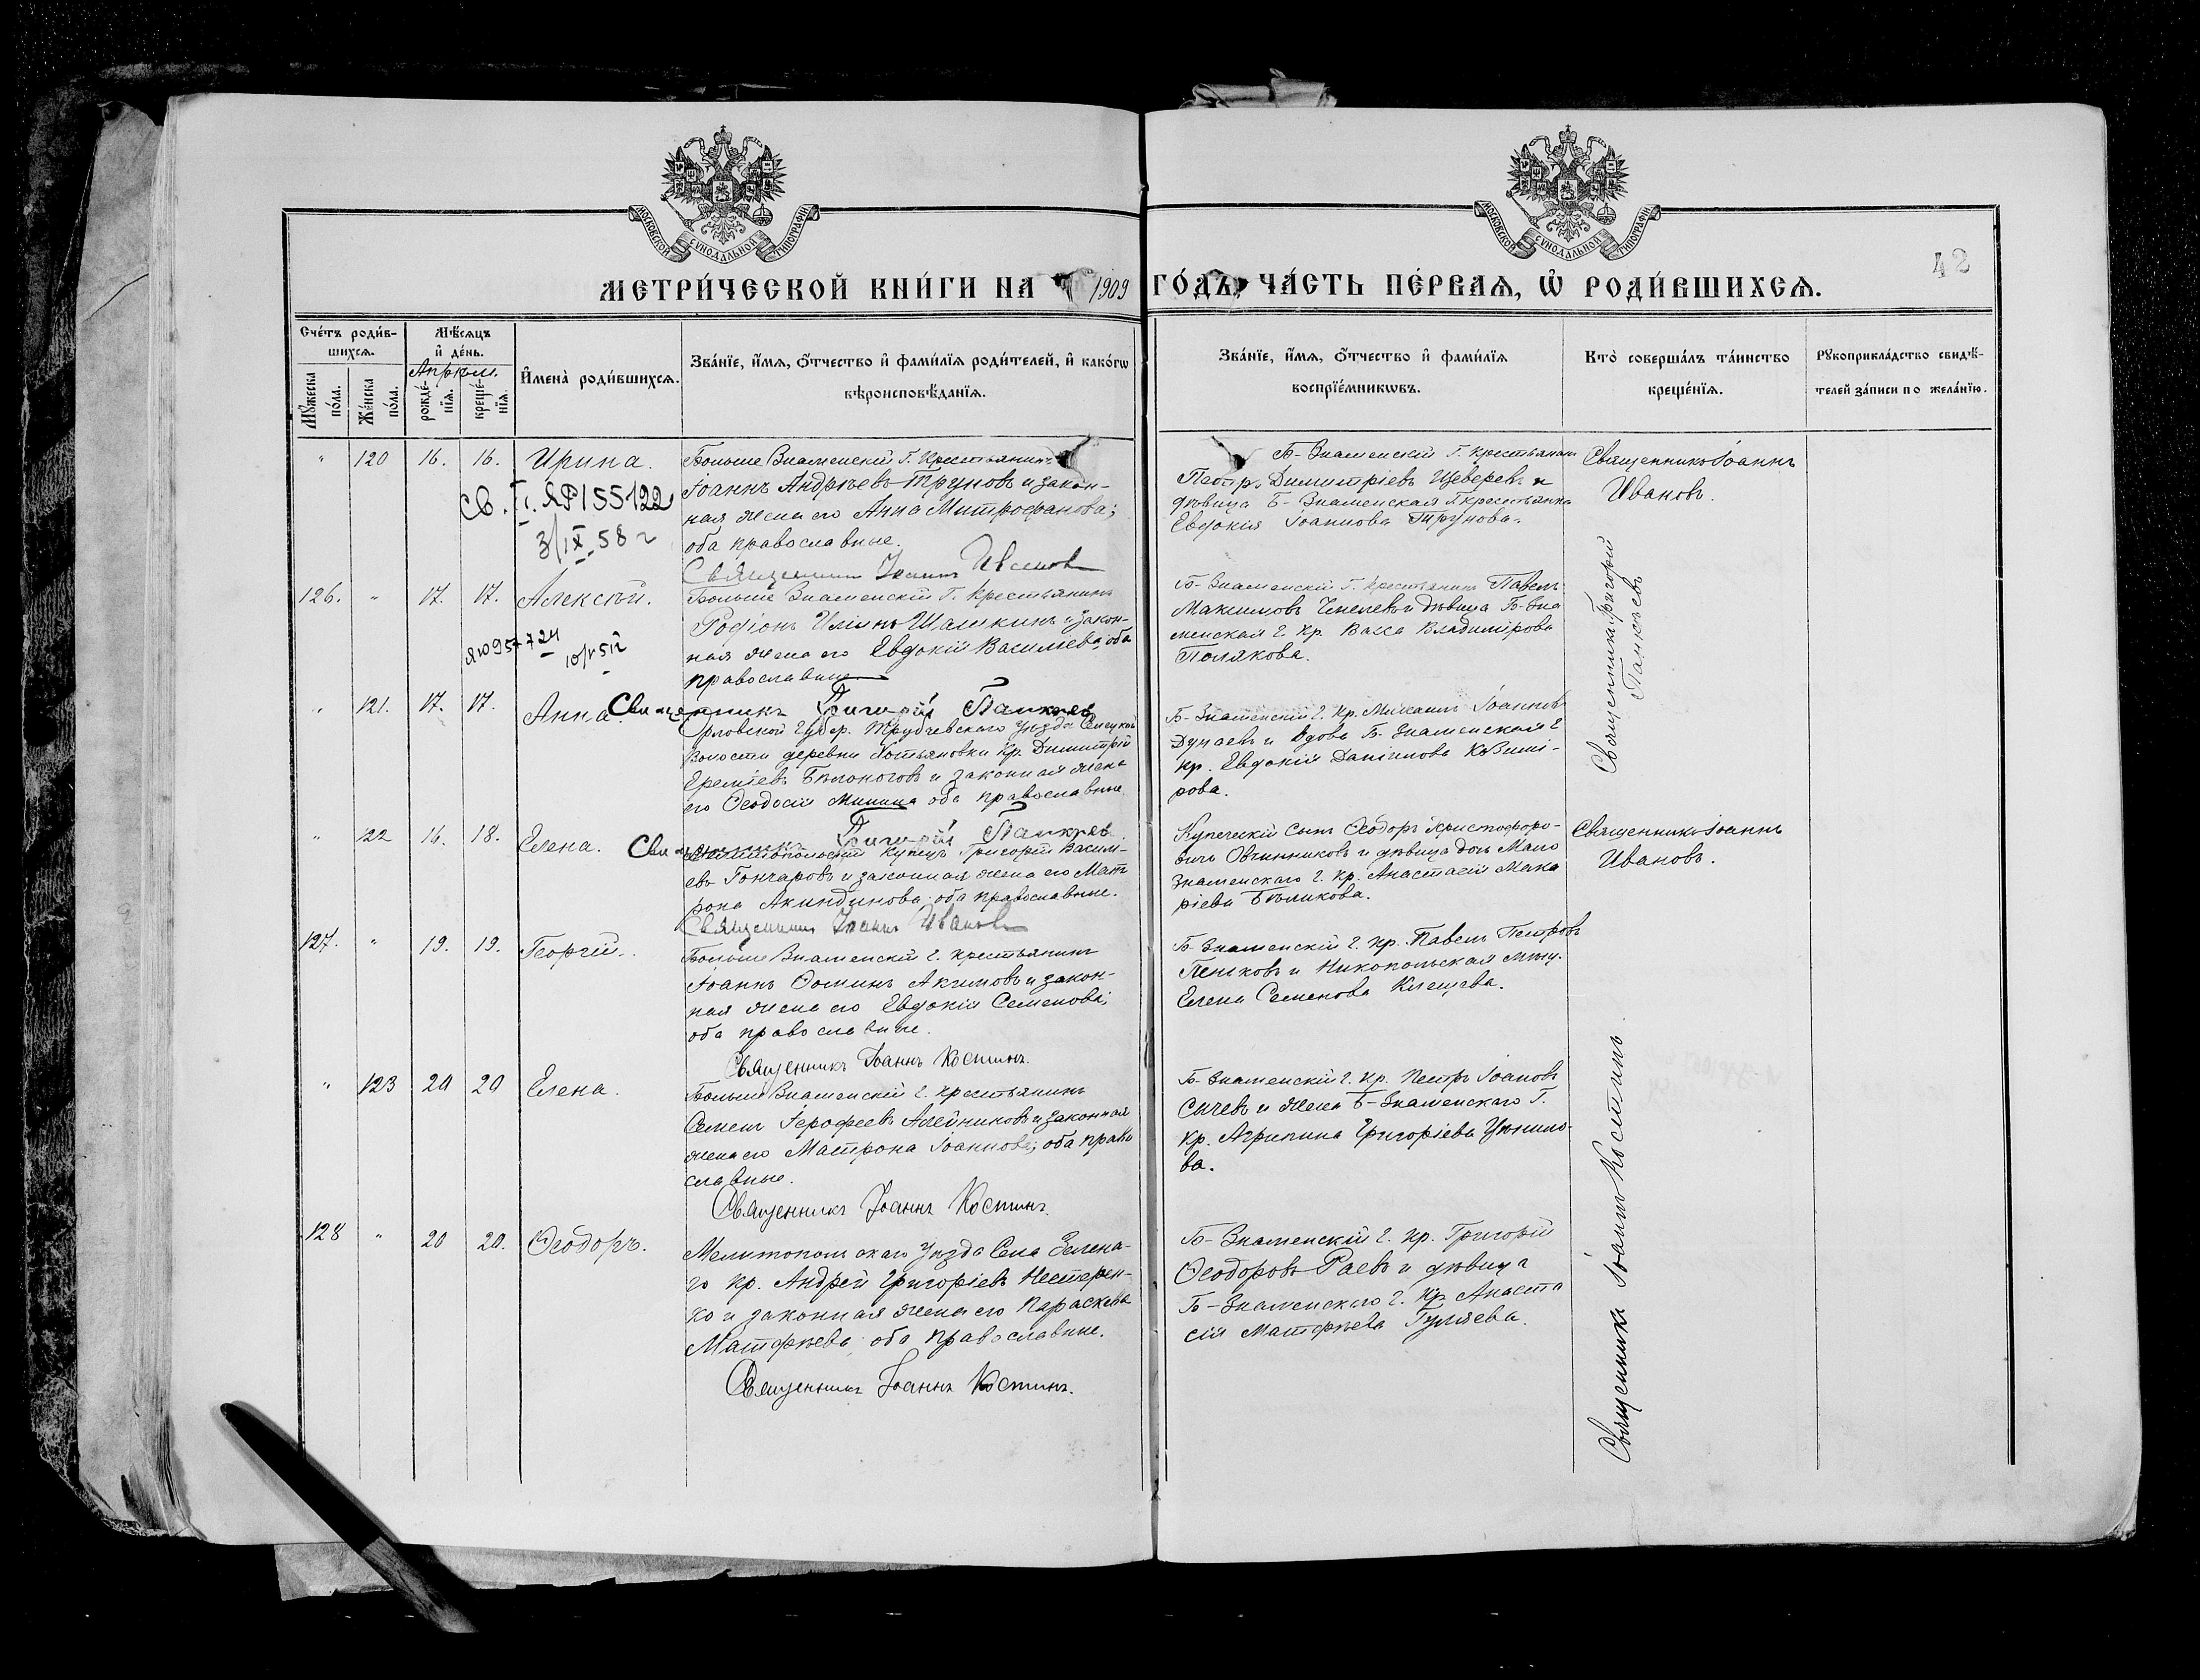 МОСКОВСКОЙ СѴНОДАЛЬНОЙ ТИПОГРАФІИ
МОСКОВСКОЙ СѴНОДАЛЬНОЙ ТИПОГРАФІИ
42
МЕТРИ́ЧЕСКОЙ КНИ́ГИ НА 1909 ГО́ДЪ, ЧА́СТЬ ПЕ́РВАѦ, Ѡ҆ РОДИ́ВШИХСѦ.
Сче́тъ роди́в-
шихсѧ.
Мꙋ́жеска по́ла.
Же́нска по́ла.
Мѣ́сѧцъ
и҆ де́нь.
Апрѣль.
рожде́-
нїѧ.
креще́-
нїѧ.
И҆мена̀ роди́вшихсѧ.
Зва́нїе, и҆́мѧ, ѻ҆́тчество и҆ фами́лїѧ роди́телей, и҆ како́гѡ
вѣроисповѣ́данїѧ.
Зва́нїе, и҆́мѧ, ѻ҆́тчество и҆ фами́лїѧ
воспрїе́мникѡвъ.
Кто̀ соверша́лъ та́инство
креще́нїѧ.
Рꙋкоприкла́дство свидѣ́-
телей за́писи по жела́нїю.
" 120 16. 16. Ирина.
св. I. ЯР 155122
3/IX-58 г
Больше Знаменскій Г. Крестьянинъ
Іоаннъ Андрѣевъ Труновъ и закон-
ная жена его Анна Митрофанова;
оба православные.
Священникъ Іоаннъ Ивановъ
Б-Знаменскій Г. крестьянинъ
Петръ Димитріевъ Щеверевъ и
дѣвица Б-Знаменская Г. крестьянка
Евдокія Іоаннова Трунова.
Священникъ Іоаннъ
Ивановъ.
126. " 17. 17. Алексѣй.
Больше Знаменскій Г. Крестьянинъ
Родіонъ Ильинъ Шашкинъ и закон-
ная жена его Евдокія Васильева; оба
православные
Священникъ Григорій Панкѣев
Б-Знаменскій Г. Крестьянинъ Павелъ
Максимовъ и дѣвица Б-Зна
менская Г. Кр. Васса Владимірова
Полякова.
Священникъ Григорій
Панкѣевъ
" 121. 17. 17. Анна.
Орловской Губер. Трубчевскаго Уѣзда
Волости деревни Кр. Димитрій
Ереміевъ Бѣлоноговъ и законная жена
его Ѳеодосія Минина оба православные
Священникъ Григорій Панкѣев
Б-Знаменскій Г. Кр. Михаилъ Іоанновъ
Дунаевъ и вдова Б-Знаменская Г
кр. Евдокія Даніилова
рова.
" 122 16. 18. Елена.
Мелитопольскій Купецъ Григорій Василь-
евъ Гончаровъ и законная жена его Мат
рона Акиндинова; оба православные.
Священникъ Іоаннъ Ивановъ
Купеческій сынъ Ѳеодоръ Христофоро-
вичъ Овчинниковъ и дѣвица дочь Мало
Знаменскаго Г. Кр. Анастасія Мака
ріева Бѣликова.
Священникъ Іоаннъ
Ивановъ.
127. " 19. 19. Георгій.
Больше Знаменскій Г. крестьянинъ
Іоаннъ Ѳоминъ Акимовъ и закон-
ная жена его Евдокія Семенова;
оба православные.
Священникъ Іоаннъ Костинъ.
Б-Знаменскій Г. кр. Павелъ Петровъ
Пешковъ и Никопольская мѣщ.
Елена Семенова Клещева.
" 123 20 20 Елена.
Больше Знаменскій Г. крестьянинъ
Семенъ Іерофеевъ Алейниковъ и законная
жена его Матрона Іоаннова; оба право
славные.
Священникъ Іоаннъ Костинъ.
Б-Знаменскій Г. кр. Петръ Іоановъ
Сычевъ и жена Б-Знаменскаго Г.
кр. Агрипина Григоріева
ва.
128 " 20 20. Ѳеодоръ.
Мелитопольскаго Уѣзда Села Зелена-
го кр. Андрей Григоріевъ Нестерен-
ко и законная жена его Параскева
Матфѣева; оба православные.
Священникъ Іоаннъ Костинъ.
Б-Знаменскій Г. кр. Григорій
Ѳеодоровъ Раевъ и дѣвица
Б-Знаменскаго Г. Кр Анаста
сія Матфѣева Гуляева.
Священникъ Іоаннъ Костинъ.